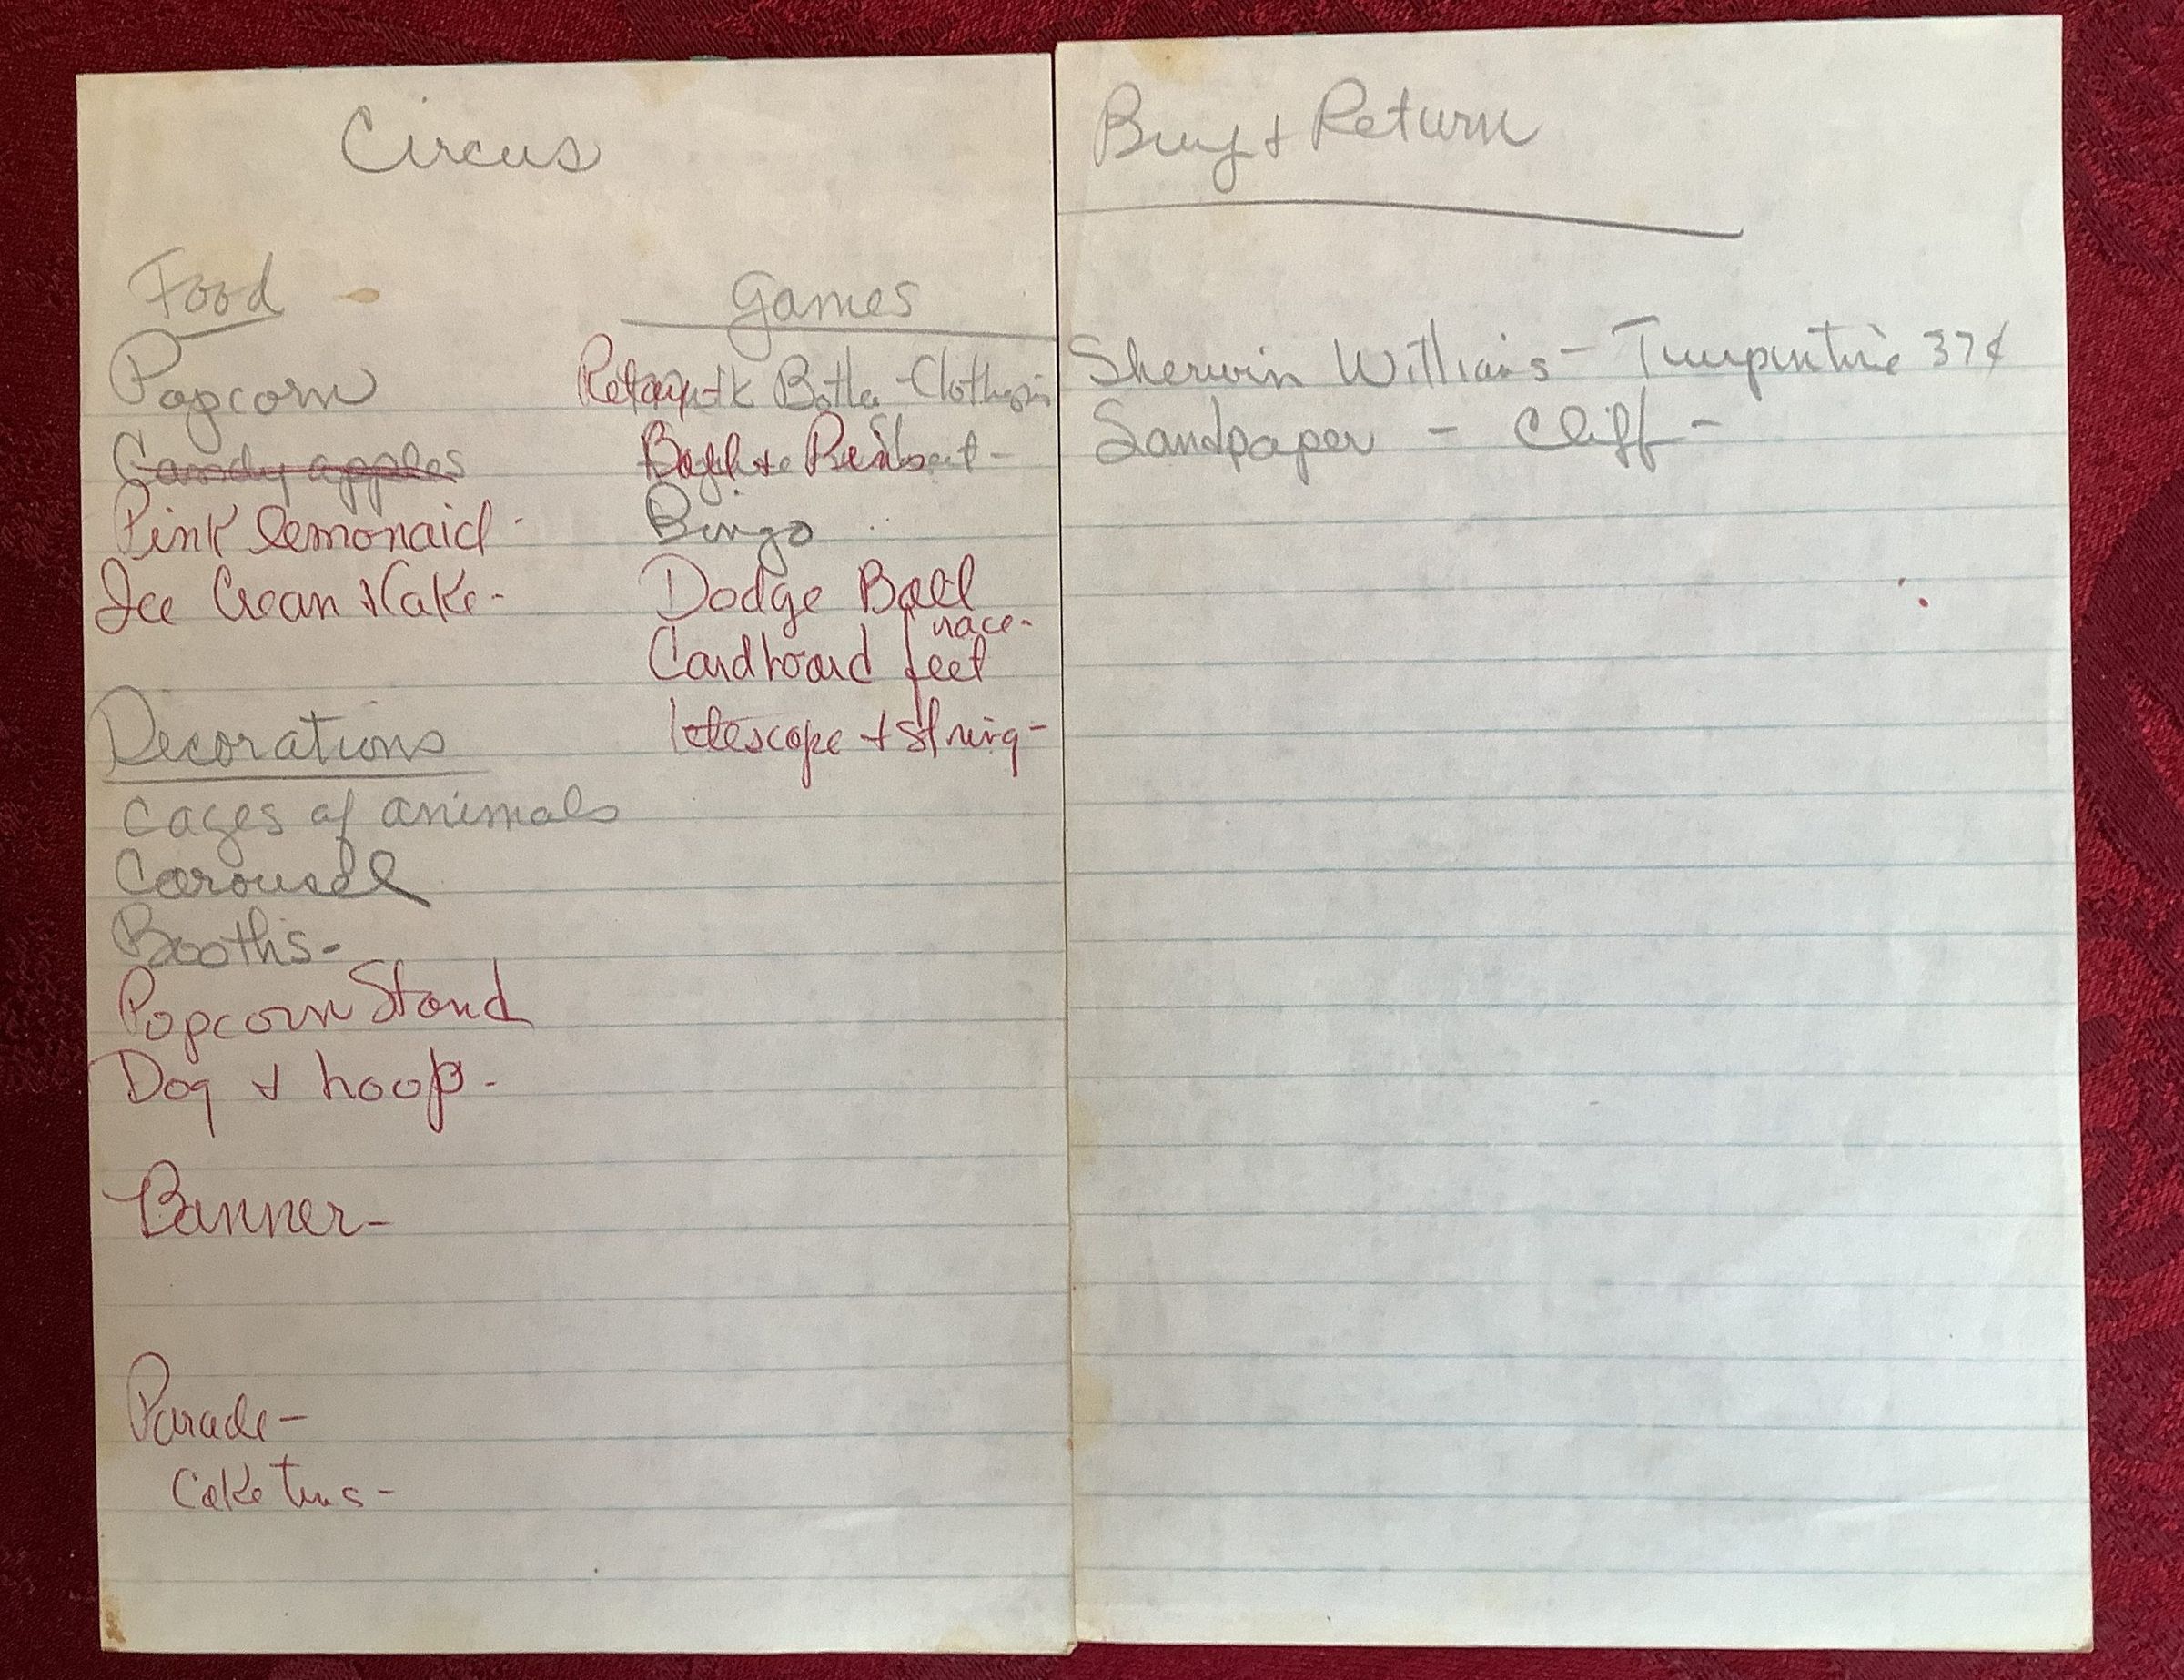 Circus
Food
Popcorn
Candy apples
Pink lemonaid -
Ice Crean + Cake -
Decorations
Cages of animals
Carousel
Booths -
Popcorn Stand
Dog + hoop -
Banner -
Parade -
Cake tins -
Games
Relay Milk Bottle - Clothespin
Bingo
Dodge Ball
Cardboard feet race -
telescope + string -
Buy + Return
Sherwin Williams - Turpentine 37¢
Sandpaper - Cliff -